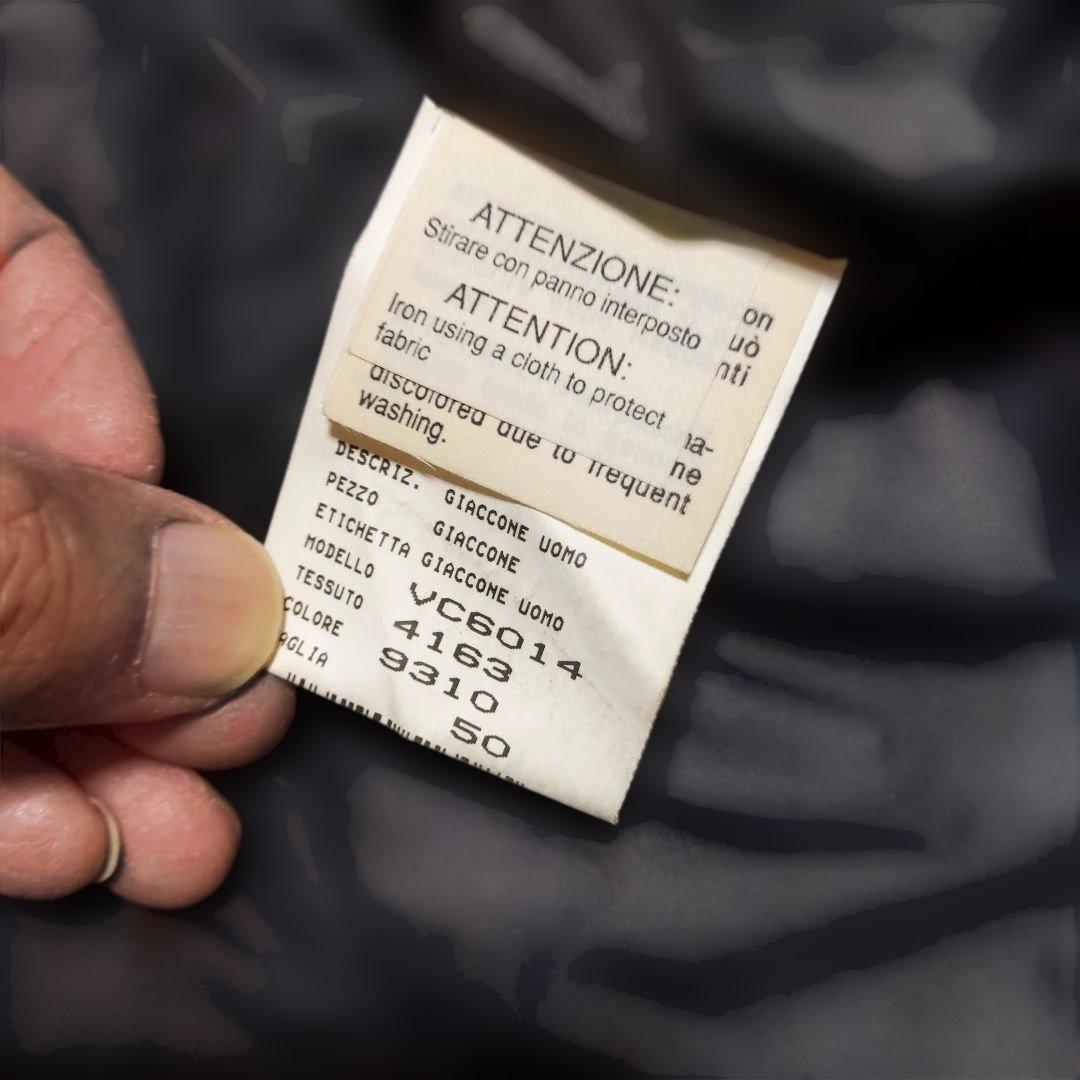 ATTENZIONE:
Stirare con panno interposto
ATTENTION:
Iron using a cloth to protect
fabric
on
uò
nti
na-
ne
discolored due to frequent
washing.
DESCRIZ. GIACCONE UOMO
PEZZO GIACCONE
ETICHETTA GIACCONE UOMO
MODELLO VC6014
TESSUTO 4163
COLORE 9310
AGLIA 50